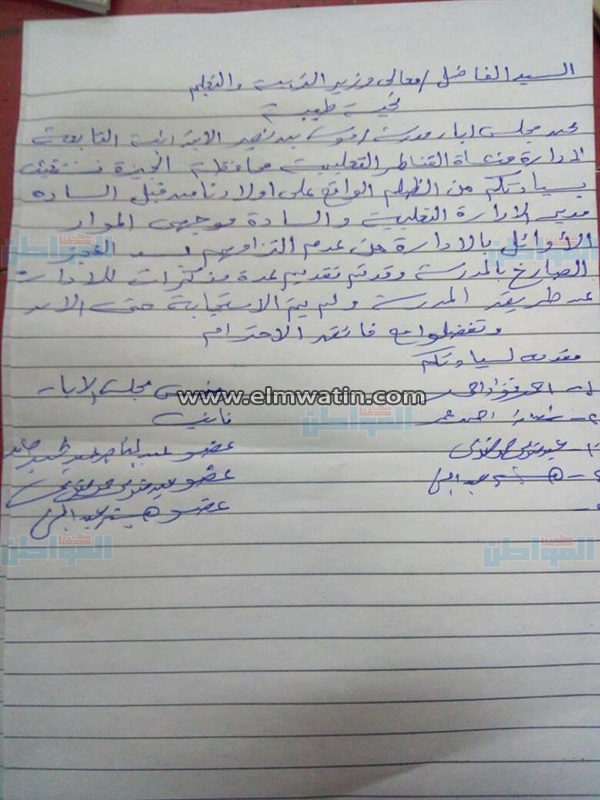 السيد الفاضل / معالى وزير التربية والتعليم
تحية طيبة
نحن مجلس اباء مدرسة الابتدائية التابعة
لادارة منشأة القناطر التعليمية محافظة الجيزة نستغيث
بسيادتكم من الظلم الواقع على اولادنا من قبل الساده
مدير الادارة التعليمية والسادة موجهى المواد
الأوائل بالادارة من عدم التزامهم بسد العجز
الصارخ بالمدرسة وقد تم تقديم عدة مذكرات للادارة
عن طريق المدرسة ولم يتم الاستجابة حتى الان
وتفضلوا معا فائق الاحترام
مقدمه لسيادتكم
١- احمد فؤاد احمد مجلس الاباء
احمد عمر نائب
عضو
عضو
عضو
www.elmwatin.com
المواطن
المواطن
المواطن
المواطن